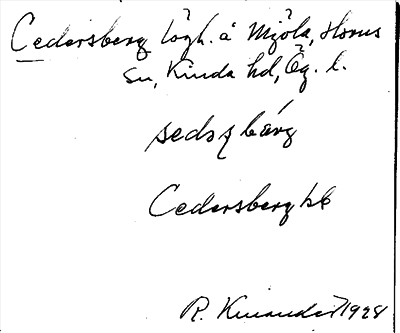 Cedersberg lägh. å Mjöla, Horns
sn, Kinda hd, Ög. l.
sedəʂbærg
Cedersberg hb
R. Kinander 1928